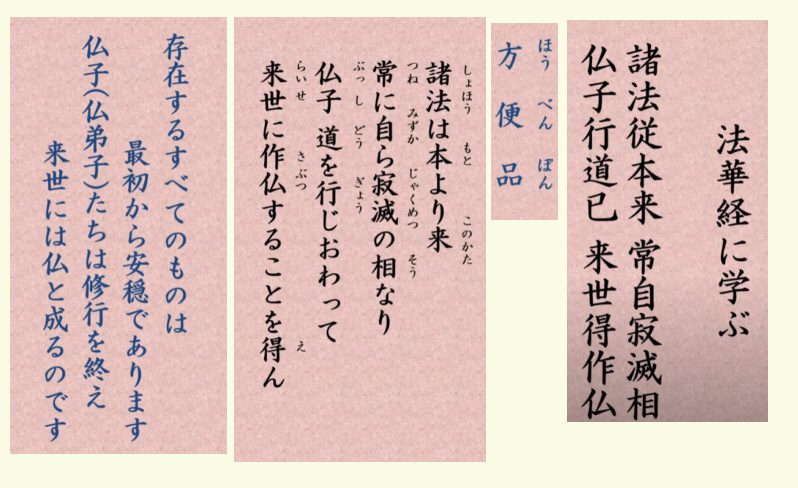 法華経に学ぶ
諸法従本来 常自寂滅相
仏子行道已 来世得作仏
ほう べん ぽん
方便品
しょほう もと このかた
諸法は本より来
つね みずか じゃくめつ そう
常に自ら寂滅の相なり
ぶっし どう ぎょう
仏子 道を行じおわって
らいせ さぶつ え
来世に作仏することを得ん
存在するすべてのものは
最初から安穏であります
仏子(仏弟子)たちは修行を終え
来世には仏と成るのです